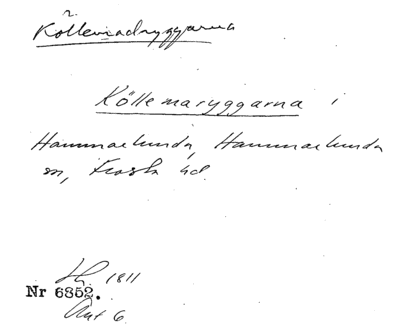 Köllemadryggarna
Köllemaryggarna i
Hammarlunda, Hammarlunda
sn, Frosta hd.
1811
Nr 6852.
Akt 6